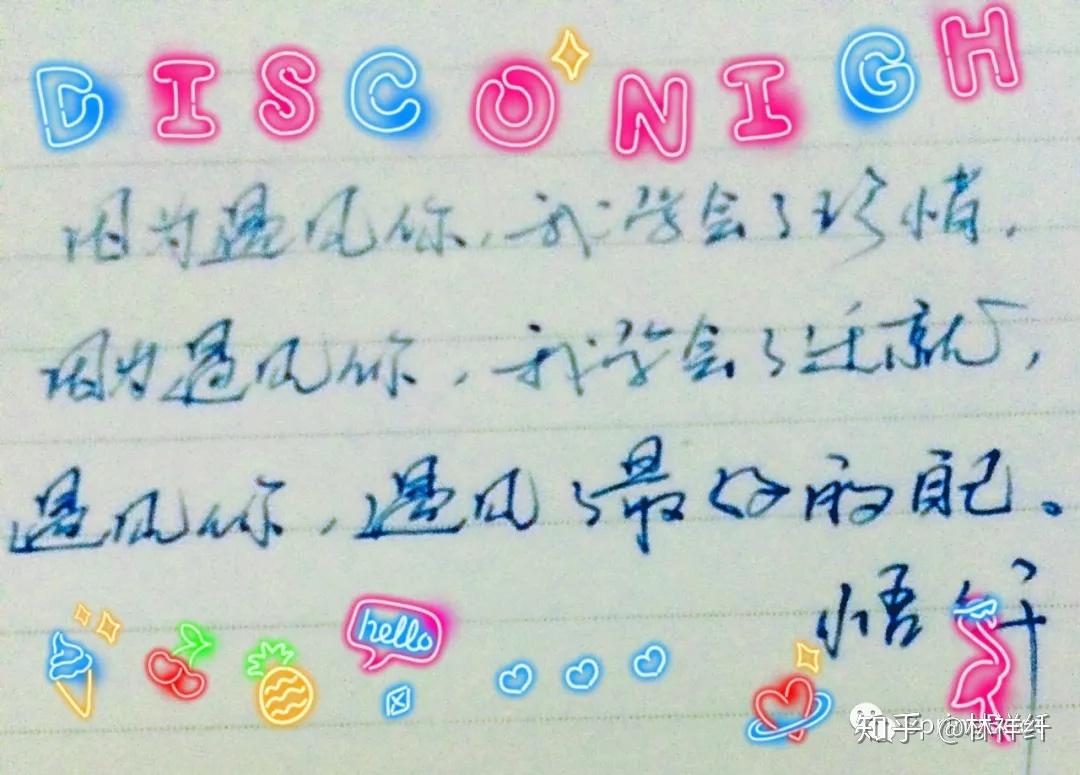 DISCO NIGH
因为遇见你，我学会了珍惜，
因为遇见你，我学会了迁就，
遇见你，遇见了最好的自己。
悟
hello
知乎 @林祥纤